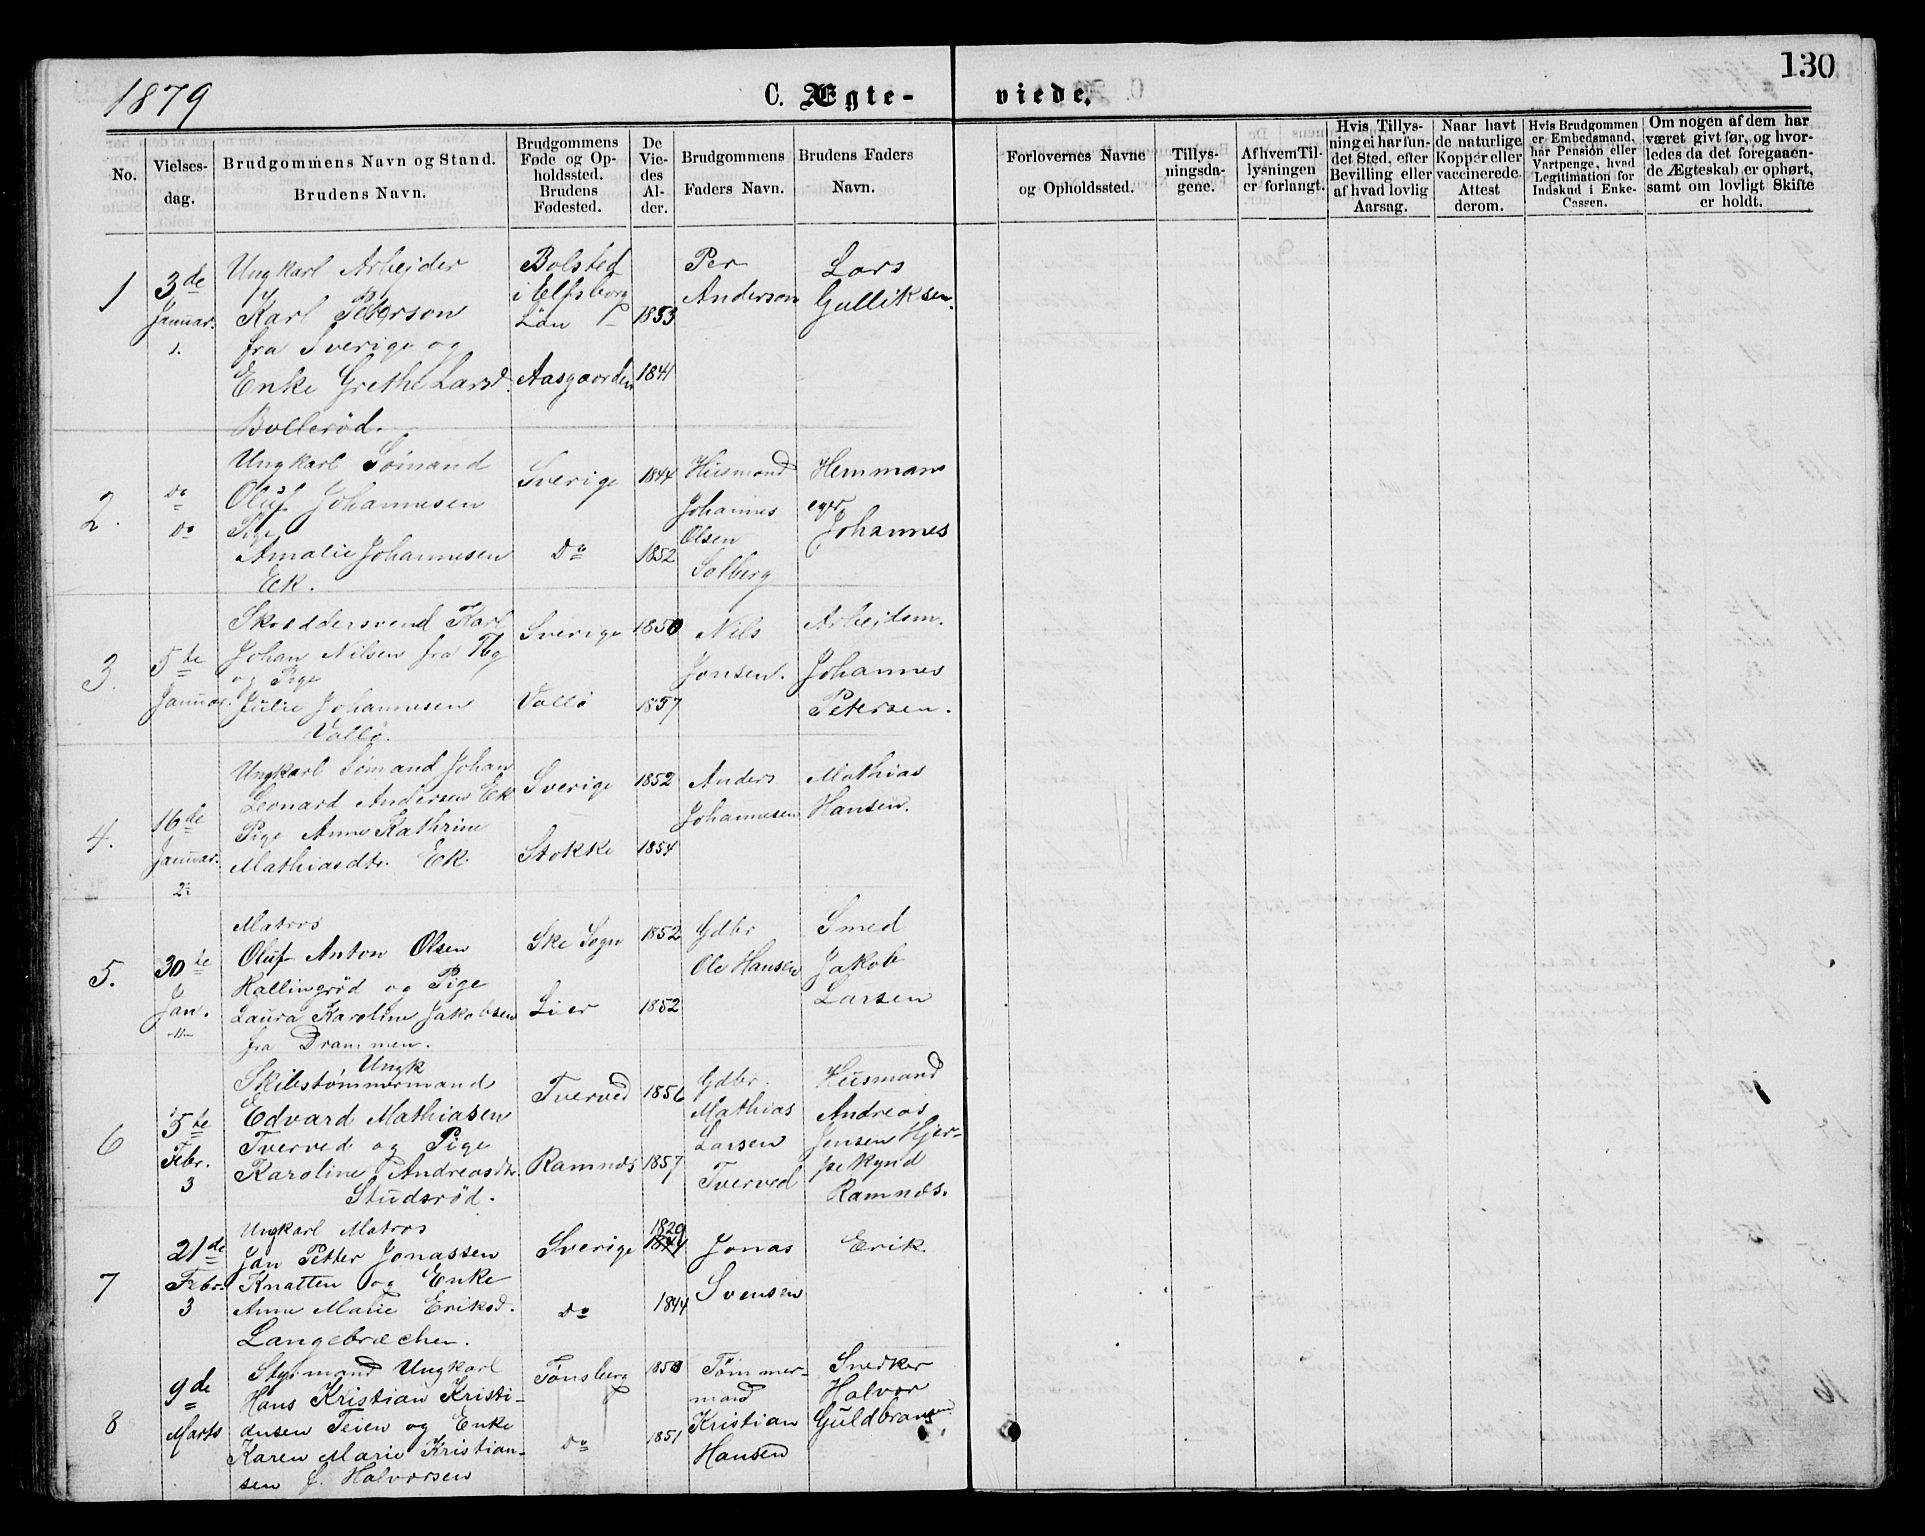 1879
C. Ægte-
viede.
130
No.
Vielses-
dag.
Brudgommens Navn og Stand.
Brudens Navn.
Brudgommens
Føde og Op-
holdssted.
Brudens
Fødested.
De
Vie-
des
Al-
der.
Brudgommens
Faders Navn.
Brudens Faders
Navn.
Forlovernes Navne
og Opholdssted.
Tillys-
ningsda-
gene.
Af hvem Til-
lysningen
er forlangt.
Hvis Tillys-
ning ei har fun-
det Sted, efter
Bevilling eller
af hvad lovlig
Aarsag.
Naar havt
de naturlige
Kopper eller
vaccinerede.
Attest
derom.
Hvis Brudgommen
er Embedsmand,
har Pension eller
Vartpenge, hvad
Legitimation for
Indskud i Enke-
Cassen.
Om nogen af dem har
været givt før, og hvor-
ledes da det foregaaen-
de Ægteskab er ophørt,
samt om lovligt Skifte
er holdt.
1
3de
Januar.
1.
Ungkarl Arbejder
Karl Peterson
fra Sverige og
Enke Grethe Larsd.
Bollerød.
Bolsted
i Elfsborg
Län
Aasgaarden
1853
1841
Per
Anderson
Lars
Gulliksen.
2.
do
do
Ungkarl Sømand
Oluf Johannesen
Pige
Amalie Johannesen
Ek.
Sverige
Do
1844
1852
Husmand
Johannes
Olsen
Solberg
Hemmans
eger
Johannes
3.
5te
Januar.
Skræddersvend Karl
Johan Nilsen fra Tbg
og Pige
Julie Johannesen
Vallø.
Sverige
Vallø
1850
1857
Nils
Jonsen.
Arbejdsm.
Johannes
Petersen.
4.
16de
Januar.
2
Ungkarl Sømand Johan
Leonard Andersen Ek
Pige Anne Kathrine
Mathiasdtr. Ek.
Sverige
Stokke
1852
1854
Anders
Johannesen
Mathias
Hansen.
5.
30te
Jan.
-"-
Matros
Oluf Anton Olsen
Rallingrød og Pige
Laura Karoline Jakobsen
fra Drammen.
Ske Sogn
Lier
1852
1852
Gdbr
Ole Hansen
Smed
Jakob
Larsen
6
5te
Febr.
3
Ungk
Skibstømmermand
Edvard Mathiasen
Tverved og Pige
Karoline Andreasdtr.
Studsrød.
Tverved
Ramnæs
1856
1857
Gdbr.
Mathias
Larsen
Tverved
Husmand
Andreas
Jensen Hjer-
pekynd
Ramnæs.
7
21de
Febr.
3
Ungkarl Matros
Jan Petter Jonassen
Knatten og Enke
Anne Marie Eriksd.
Langebræchen.
Sverige
Do
1829
1844
1844
Jonas
Svensen
Erik.
8
9de
Marts
Styrmand Ungkarl
Hans Kristian Kristi-
ansen Teien og Enke
Karen Marie Kristian-
sen f. Halvorsen
Tønsberg
Do
1850
1851
Tømmer-
mand
Kristian
Hansen
Snedker
Halvor
Guldbransen